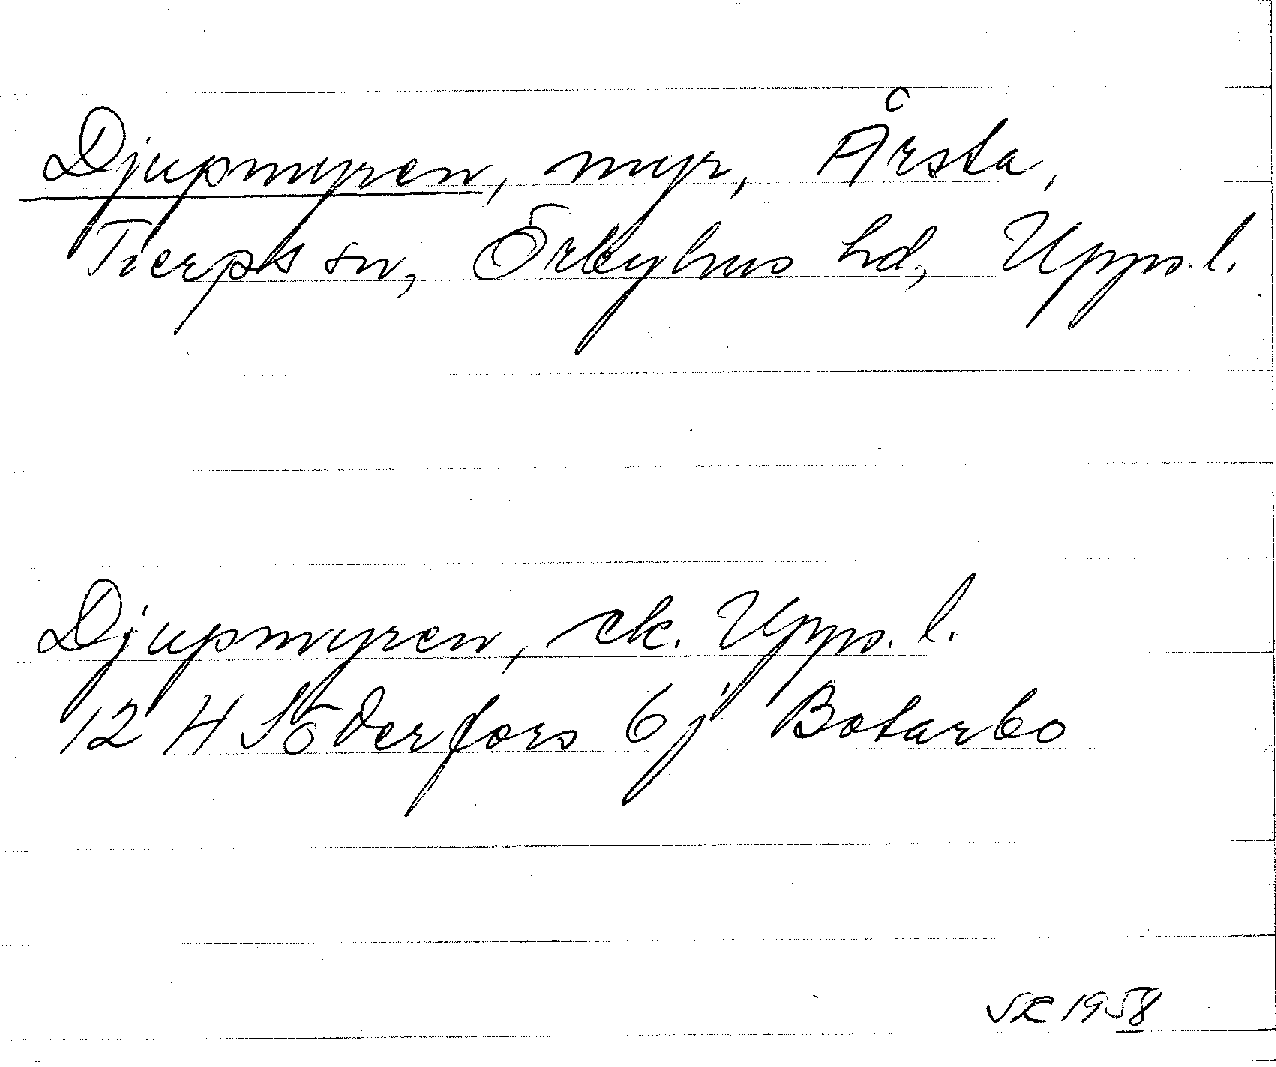 Djupmyren, myr, Årsta,
Tierps sn, Örbyhus hd, Upps.l.
Djupmyren, ek. Upps. l.
12 H Söderfors 6j Botarbo
1958